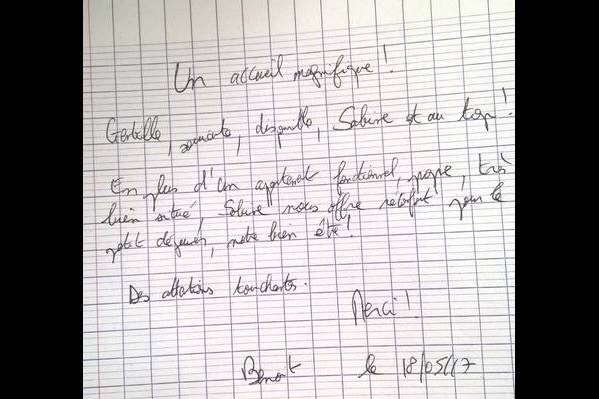 Un accueil magnifique !
Gentille, souriante, disponible, Sabine est au top !
En plus d'un appartement fonctionnel, propre, très
bien situé, Sabine nous offre pour le
petit déjeuner, notre bien être !
Des attentions touchantes.
Merci !
Benoit le 18/05/17